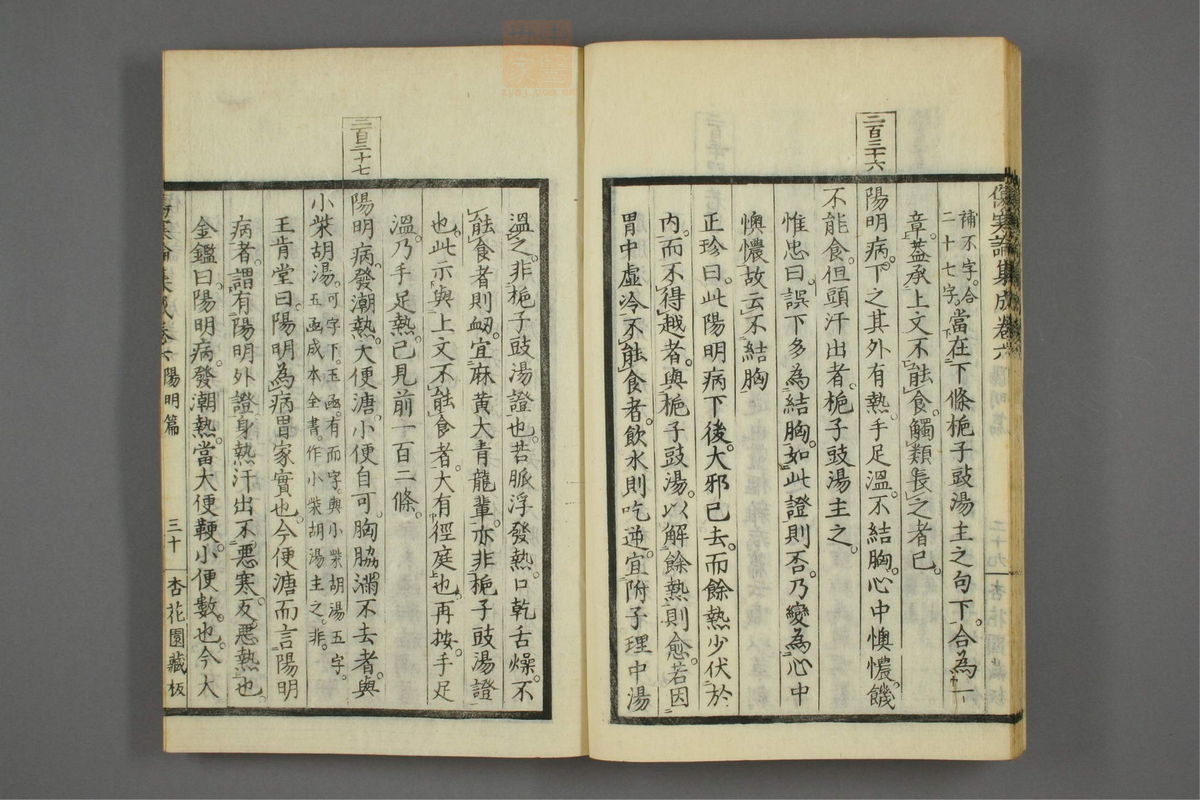 傷寒論集成卷六
補不字合
二十七字
當在下條梔子豉湯主之句下合為一
章蓋承上文不能食觸類長之者已
二百三十六
陽明病下之其外有熱手足溫不結胸心中懊憹饑
不能食但頭汗出者梔子豉湯主之
惟忠曰誤下多為結胸如此證則否乃變為心中
懊憹故云不結胸
正珍曰此陽明病下後大邪已去而餘熱少伏於
內而不得越者與梔子豉湯以解餘熱則愈若因
胃中虛冷不能食者飲水則吃逆宜附子理中湯
溫之非梔子豉湯證也若脈浮發熱口乾舌燥不
能食者則衂宜麻黃大青龍輩亦非梔子豉湯證
也此示與上文不能食者大有徑庭也再按手足
溫乃手足熱已見前一百二條
二百三十七
陽明病發潮熱大便溏小便自可胸脇滿不去者與
小柴胡湯
可字下玉函有而字與小柴胡湯五字
五函成本全書作小柴胡湯主之非
王肯堂曰陽明為病胃家實也今便溏而言陽明
病者謂有陽明外證身熱汗出不惡寒反惡熱也
金鑑曰陽明病發潮熱當大便鞕小便數也今大
陽明篇
三十
杏花園藏板